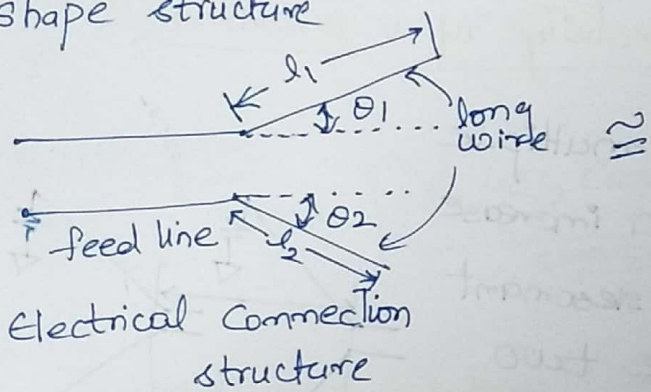 shape structure
l1
θ1
long
wire
≅
θ2
feed line
l2
Electrical Connection
structure